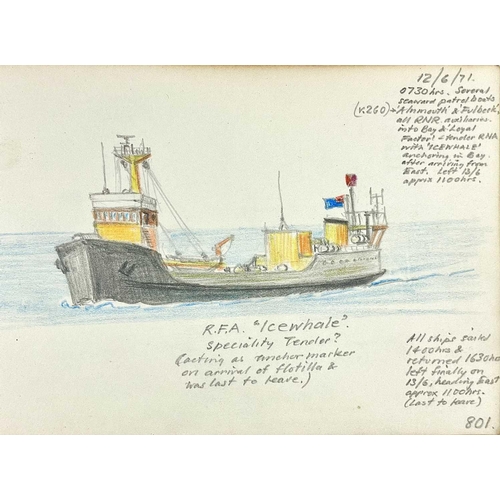 12/6/71.
0730hrs. Several
seaward patrol boats
(v.260) → 'Alnmouth' & 'Fulbeck',
all RNR auxiliaries.
into Bay & 'Loyal
Factor' - tender RNA
with 'ICEWHALE'
anchoring in Bay.
after arriving from
East. Left 13/6
approx 1100hrs.
R.F.A. "Icewhale".
Speciality Tender?
(acting as anchor marker
on arrival of flotilla &
was last to leave.)
All ships sailed
1400hrs &
returned 1630hrs
left finally on
13/6, heading East
approx 1100hrs.
(Last to leave)
801.